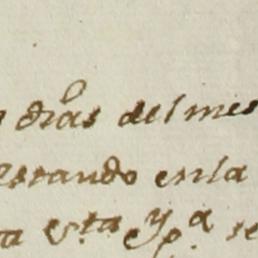 dias del mes
estando en la
ta S.ta Yg.a se